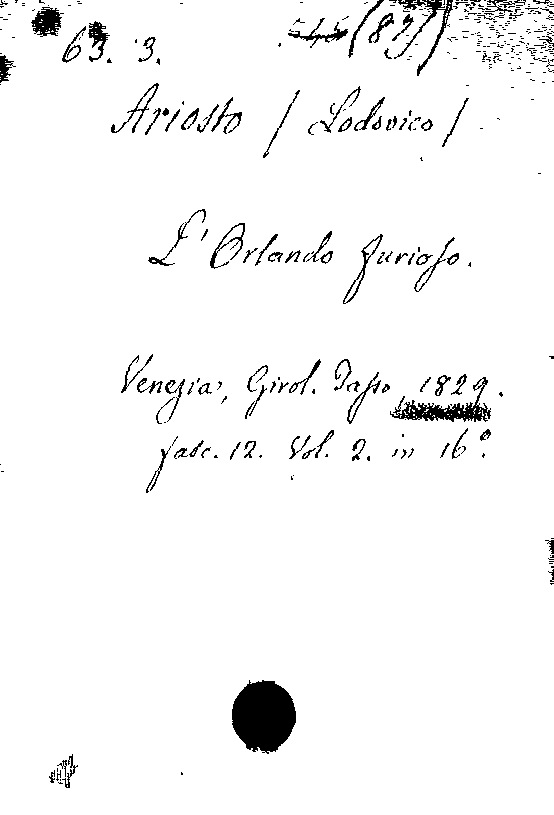 63. 3. 545 (87)
Ariosto / Lodovico /
L'Orlando furioso.
Venezia, Girol. Tasso, 1829.
fasc. 12. Vol. 2. in 16º.